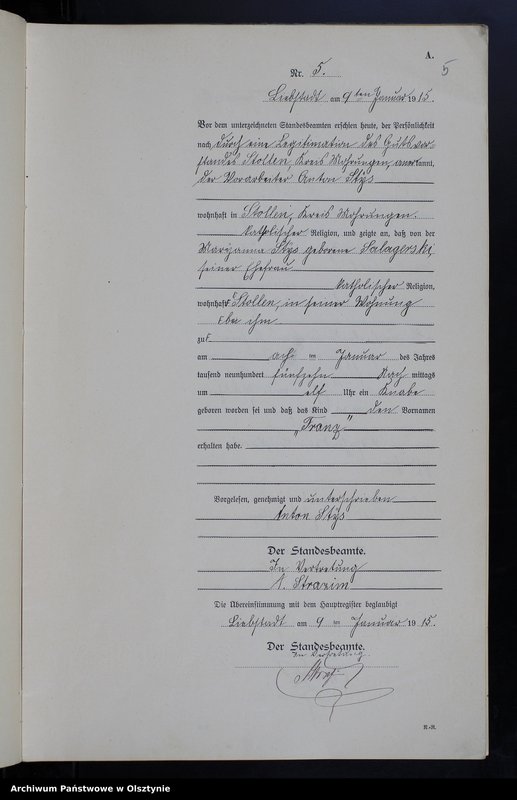 A.
5
Nr. 5.
Liebstadt am 9ten Januar 1915.
Vor dem unterzeichneten Standesbeamten erschien heute, der Persönlichkeit
nach durch eine Legitimation des Gutsvor-
standes Stollen, Kreis Mohrungen, anerkannt,
der Vorarbeiter Anton Stys
wohnhaft in Stollen, Kreis Mohrungen.
Katholischer Religion, und zeigte an, daß von der
Maryanna Stys geborene
seiner Ehefrau
Katholischer Religion,
wohnhaft Stollen, in seiner Wohnung
bei ihm
zu
am acht ten Januar des Jahres
tausend neunhundert fünfzehn Nach mittags
um elf Uhr ein Knabe
geboren worden sei und daß das Kind den Vornamen
„Franz"
erhalten habe.
Vorgelesen, genehmigt und unterschrieben
Anton Stys
Der Standesbeamte.
In Vertretung
Die Übereinstimmung mit dem Hauptregister beglaubigt
Liebstadt am 9 ten Januar 1915.
Der Standesbeamte.
In Vertretung
Archiwum Państwowe w Olsztynie